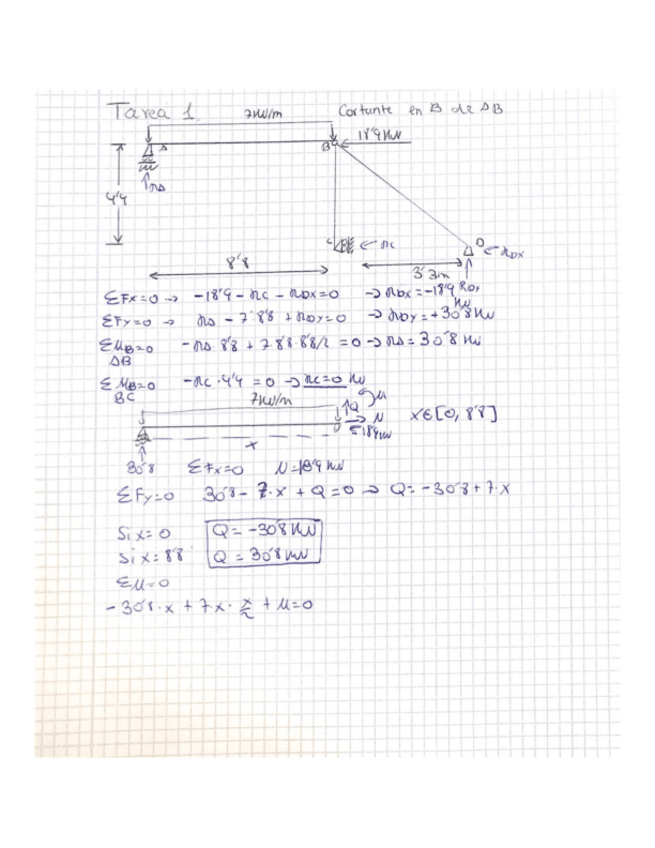 Tarea 1. 7kN/m Cortante en B de AB
18'9 kN
A B
RA
4'4
C RC D RDX
8'8 3'3m RDY
ΣFx=0 → -18'9 - RC - RDX=0 → RDX=-18'9 kN
ΣFy=0 → RA - 7·8'8 + RDY=0 → RDY=+30'8 kN
ΣMB=0 -RA·8'8 + 7·8'8·8'8/2 = 0 → RA=30'8 kN
AB
ΣMB=0 -RC·4'4 = 0 → RC=0 kN
BC
7kN/m Q M
N X∈[0, 8'8]
18'9kN
x
30'8 ΣFx=0 N=18'9 kN
ΣFy=0 30'8 - 7·x + Q = 0 → Q=-30'8+7·x
Si x=0 Q=-30'8 kN
Si x=8'8 Q=30'8 kN
ΣM=0
-30'8·x + 7·x·x/2 + M=0